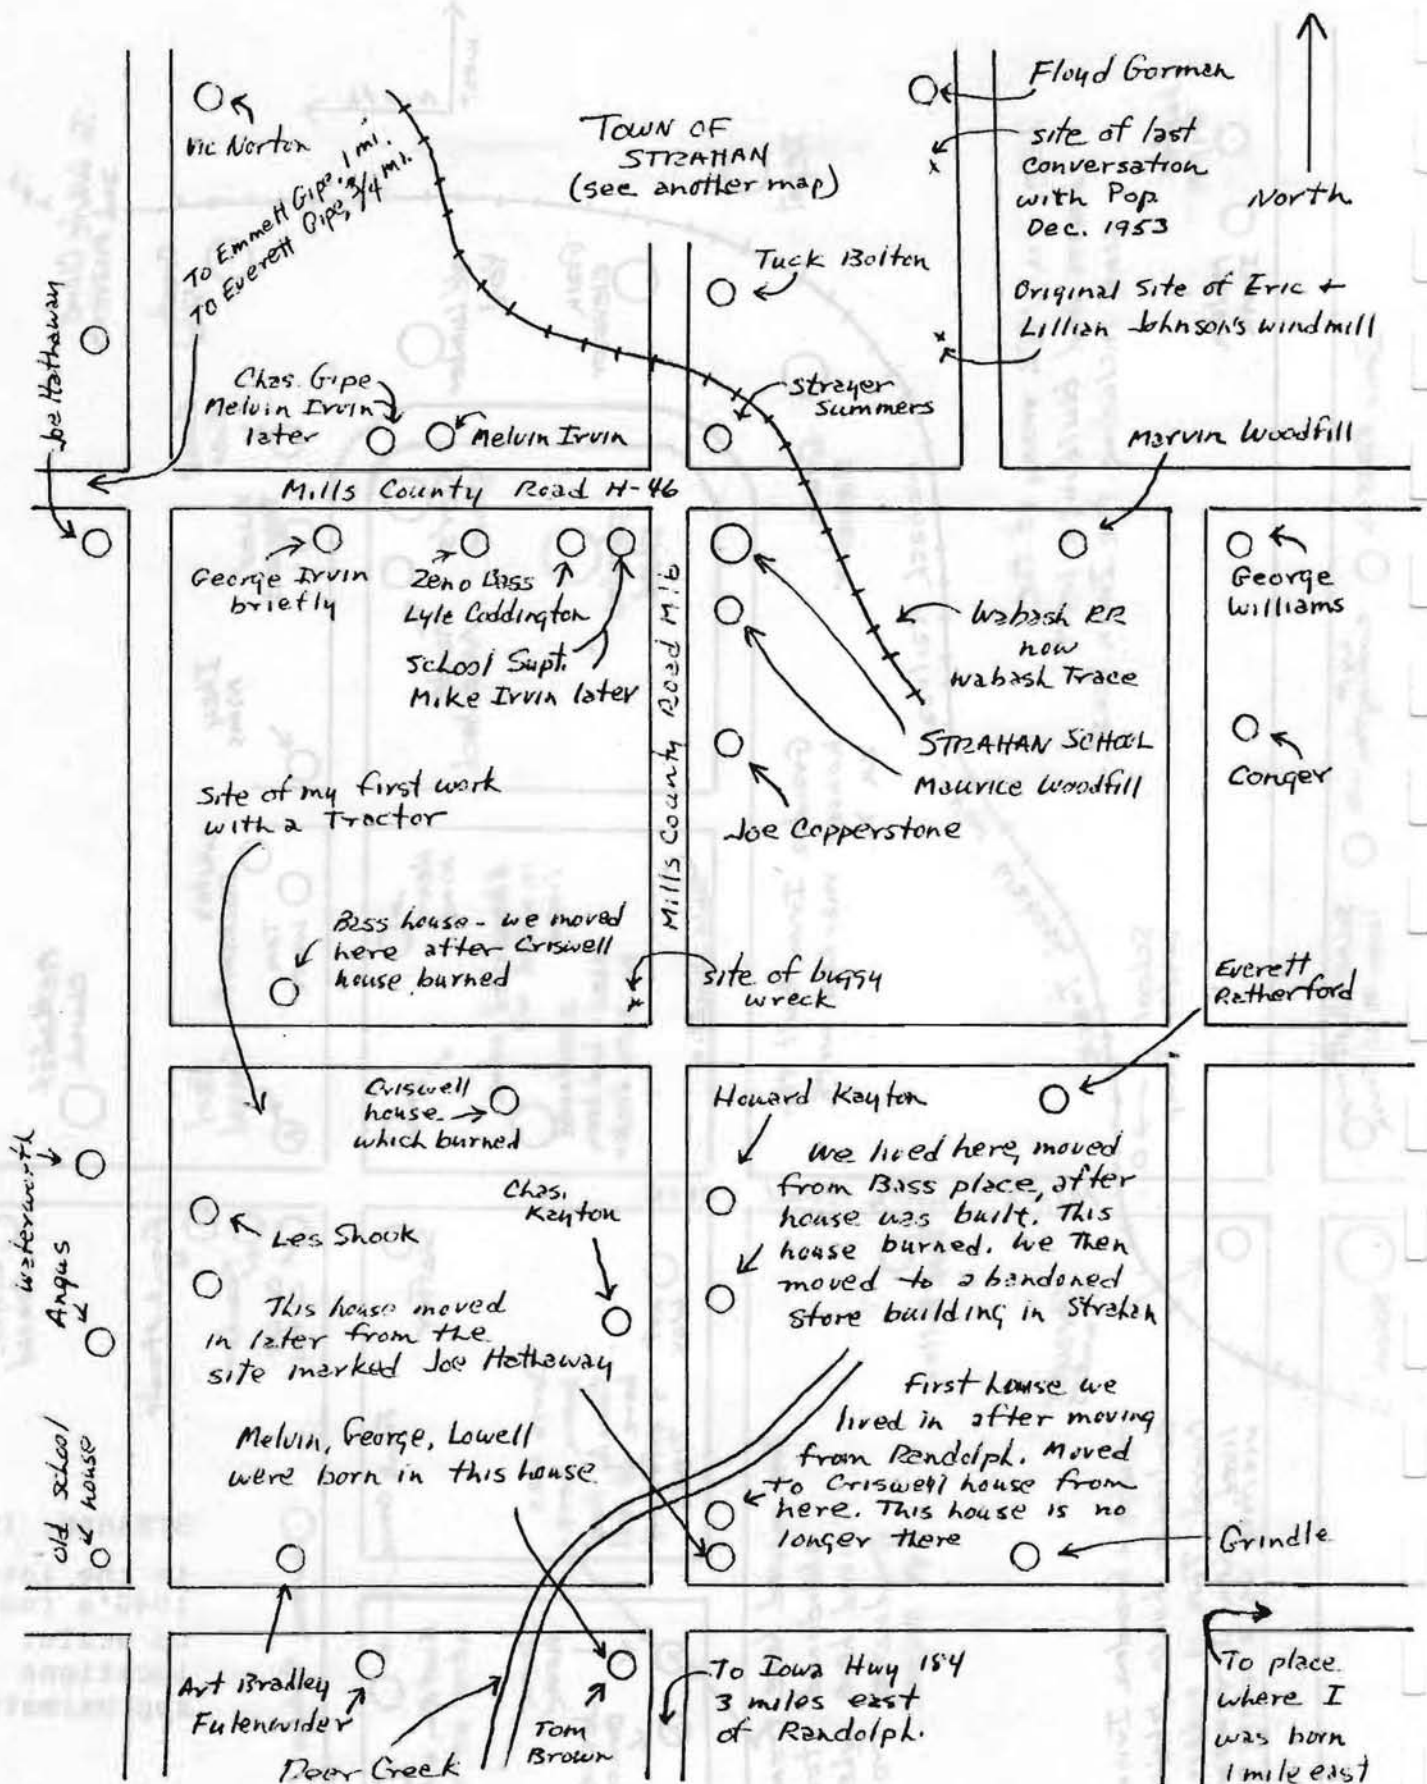 Vic Norton
TOWN OF
STRAHAN
(see another map)
Floyd Gorman
site of last
conversation
with Pop
Dec. 1953
North
To Emmett Gipe, 1 mi.
To Everett Gipe, 3/4 mi.
Tuck Bolton
Original Site of Eric +
Lillian Johnson's windmill
Joe Hathaway
Chas. Gipe
Melvin Irvin
later
Melvin Irvin
Strayer
Summers
Marvin Woodfill
Mills County Road H-46
George Irvin
briefly
Zeno Bass
Lyle Coddington
School Supt.
Mike Irvin later
Mills County Road M16
Wabash RR
now
Wabash Trace
George
Williams
STRAHAN SCHOOL
Maurice Woodfill
Conger
Joe Copperstone
Site of my first work
with a Tractor
Bass house - we moved
here after Criswell
house burned
site of buggy
wreck
Everett
Ratherford
Criswell
house
which burned
Howard Kayton
We lived here, moved
from Bass place, after
house was built. This
house burned. We Then
moved to abandoned
store building in Strahan
Waterworth
Angus
Les Shook
Chas.
Kayton
This house moved
in later from the
site marked Joe Hathaway
First house we
lived in after moving
from Randolph. Moved
to Criswell house from
here. This house is no
longer there
Melvin, George, Lowell
were born in this house
old school
house
Grindle
Art Bradley
Fulenwider
Deer Creek
Tom
Brown
To Iowa Hwy 184
3 miles east
of Randolph.
To place
where I
was born
1 mile east